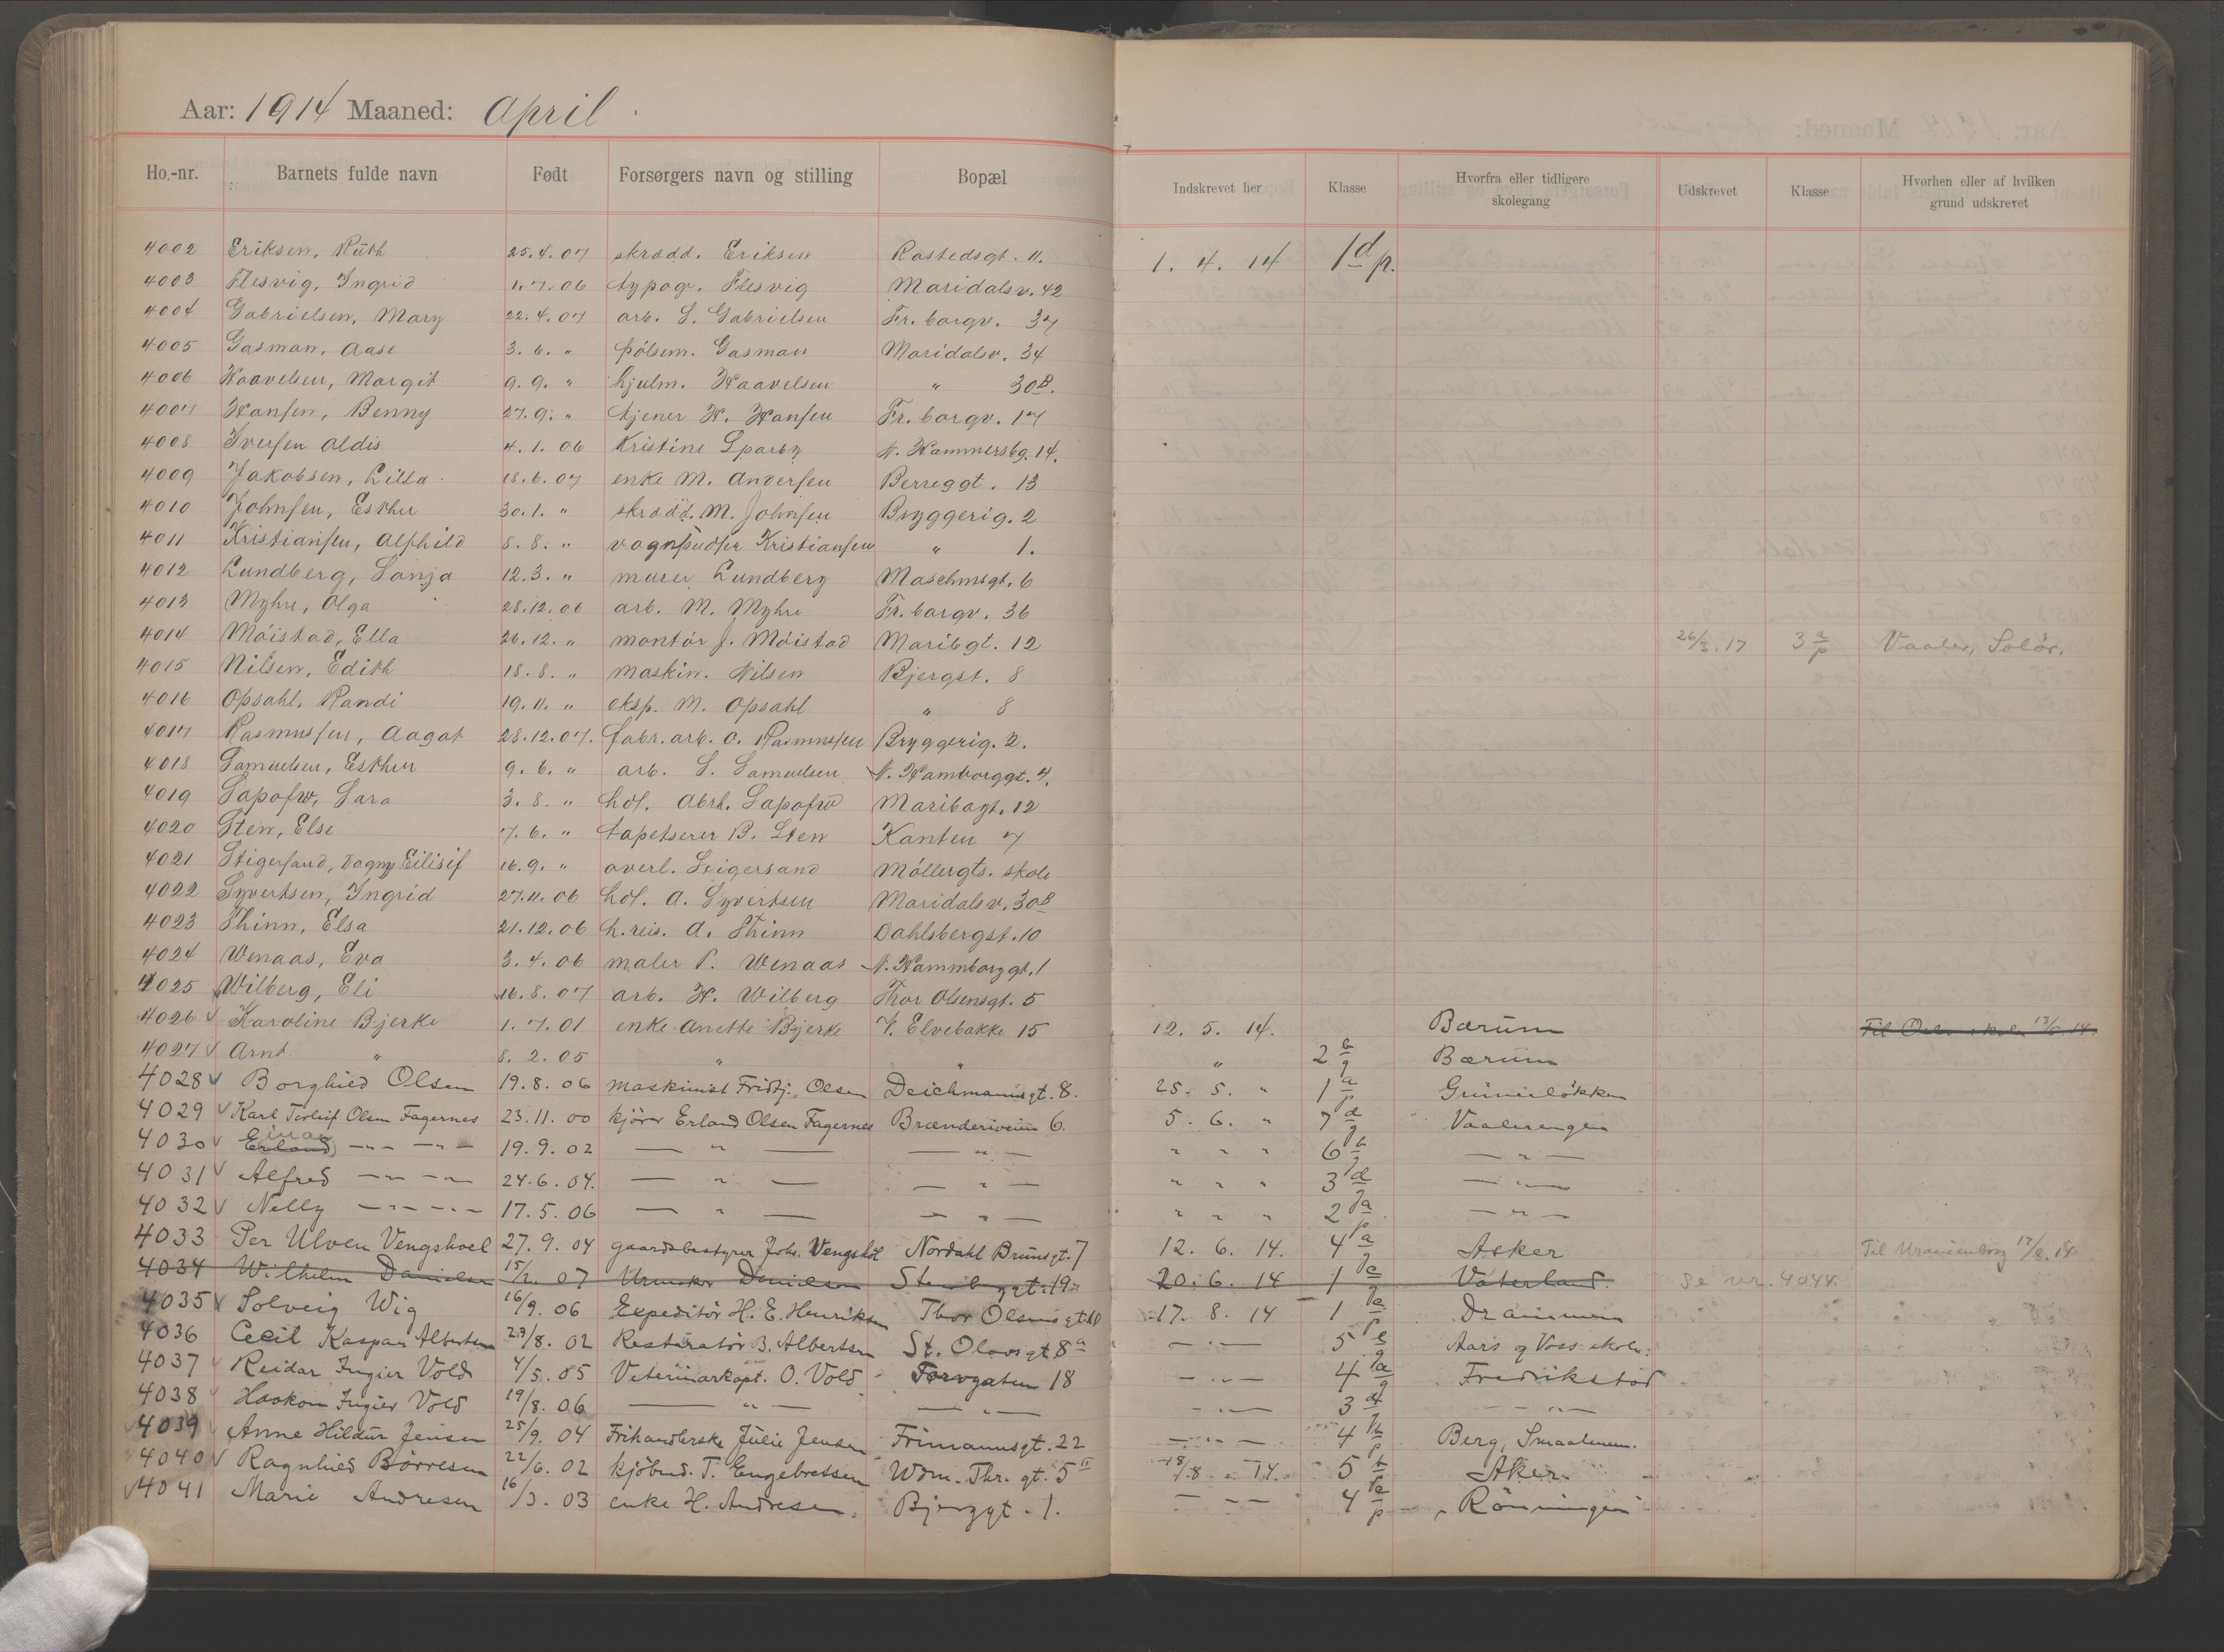 Aar: 1914 Maaned: April
Ho.-nr. Barnets fulde navn Født Forsørgers navn og stilling Bopæl Indskrevet her Klasse Hvorfra eller tidligere skolegang Udskrevet Klasse Hvorhen eller af hvilken grund udskrevet
4002 Eriksen, Ruth 25.4.07 skrædd. Eriksen Rostedsgt. 11. 1. 4. 14 1 d p.
4003 Flesvig, Ingrid 1.7.06 typogr. Flesvig Maridalsv. 42
4004 Gabrielsen, Mary 22.4.07 arb. S. Gabrielsen Fr. borgv. 37
4005 Gasman, Aase 3. 6. " pølsem. Gasman Maridalsv. 34
4006 Haavelsen, Margit 9. 9. " hjulm. Haavelsen " 30B.
4007 Hansen, Benny 27. 9. " tjener H. Hansen Fr. borgv. 17
4008 Iversen Aldis 4. 1. 06 Kristine Sparby N. Hammersbg. 14.
4009 Jakobsen, Lilla 18.6.07 enke M. Andersen Berreggt. 13
4010 Johnsen, Esther 30.1. " skrædd. M. Johnsen Bryggerig. 2
4011 Kristiansen, Alfhild 8. 8. " vognpudser Kristiansen " 1.
4012 Lundberg, Sonja 12.3. " murer Lundberg Maschmsgt. 6
4013 Myhre, Olga 28.12.06 arb. M. Myhre Fr. borgv. 36
4014 Möistad, Ella 26.12. " montör J. Möistad Maribgt. 12 26/3. 17 3 a p Vaaler, Solör.
4015 Nilsen, Edith 18. 8. " maskin. Nilsen Bjergst. 8
4016 Opsahl, Randi 19. 11. " eksp. M. Opsahl " 8
4017 Rasmussen, Aagot 28.12.07. fabr. arb. O. Rasmussen Bryggerig. 2.
4018 Samuelsen, Esther 9. 6. " arb. S. Samuelsen N. Hamborggt. 4.
4019 Sapofw, Sara 3. 8. " hdl. Abrh. Sapofw Maribogt. 12
4020 Sten, Else 7. 6. " tapetserer B. Sten Kanten 7
4021 Stigersand, Dagny Eilisif 16.9. " overl. Stigersand Möllergts. skole
4022 Syvertsen, Ingrid 27.11.06 hdl. A. Syvertsen Maridalsv. 30B
4023 Thinn, Elsa 21.12.06 h. reis. A. Thinn Dahlsbergst. 10
4024 Wenaas, Eva 3. 4. 06 maler P. Wenaas N. Hammborggt. 1
4025 Wilberg, Eli 16. 8. 07 arb. H. Wilberg Thor Olsensgt. 5
4026 Karoline Bjerke 1. 7. 01 enke Anette Bjerke V. Elvebakke 15 12. 5. 14. Bærum Til Oslo skole 13/6 14.
4027 Arnt " 8. 2. 05 " " " 2 b g Bærum
4028 Borghild Olsen 19.8.06 maskinist Fridtj. Olsen Deichmannsgt. 8. 25. 5. " 1 a p Grünerlökken
4029 Karl Torleif Olsen Fagernes 23.11.00 kjörer Erland Olsen Fagernes Brænderiveien 6. 5. 6. " 7 d g Vaalerengen
4030 Erland Einar — " — — " — 19. 9. 02 — " — — " — " " " 6 b g — " —
4031 Alfred — " — — " — 24. 6. 04. — " — — " — " " " 3 d g — " —
4032 Nelly — " — — " — 17. 5. 06 — " — — " — " " " 2 a p — " —
4033 Per Ulven Vengshoel 27. 9. 04 gaardsbestyrer Johs. Vengshöl Nordahl Brunsgt. 7 12. 6. 14. 4 a g Asker Til Uranienborg 17/8. 14
4034 Wilhelm Danielsen 15/2. 07 Urmaker Danielsen 19 20. 6. 14 1 a g Vaterland. Se nr. 4044.
4035 Solveig Wig 16/9. 06 Expeditör H. E. Henriksen Thor Olsensgt 17. 8. 14 1 a p Drammen
4036 Cecil Kaspar Albertsen 23/8. 02 Restauratör B. Albertsen St. Olavsgt 8a — " — 5 e g Aars og Voss skole.
4037 Reidar Ingier Vold 4/5. 05 Veterinærkapt. O. Vold Torvgaten 18 — " — 4 a g Fredrikstad
4038 Haakon Ingier Vold 19/8. 06 — " — — " — — " — 3 d g — " —
4039 Anne Hildur Jensen 25/9. 04 Frihandlerske Julie Jensen Frimannsgt. 22 — " — 4 b p Berg, Smaalenene.
4040 Ragnhild Börresen 22/6. 02 kjöbmd. T. Engebretsen Wdm. Thr. gt. 5 II 18/8 14. 5 b p Aker
4041 Marie Andresen 16/3. 03 enke H. Andresen. Bjerggt. 1. — " — 4 a p Rönningen